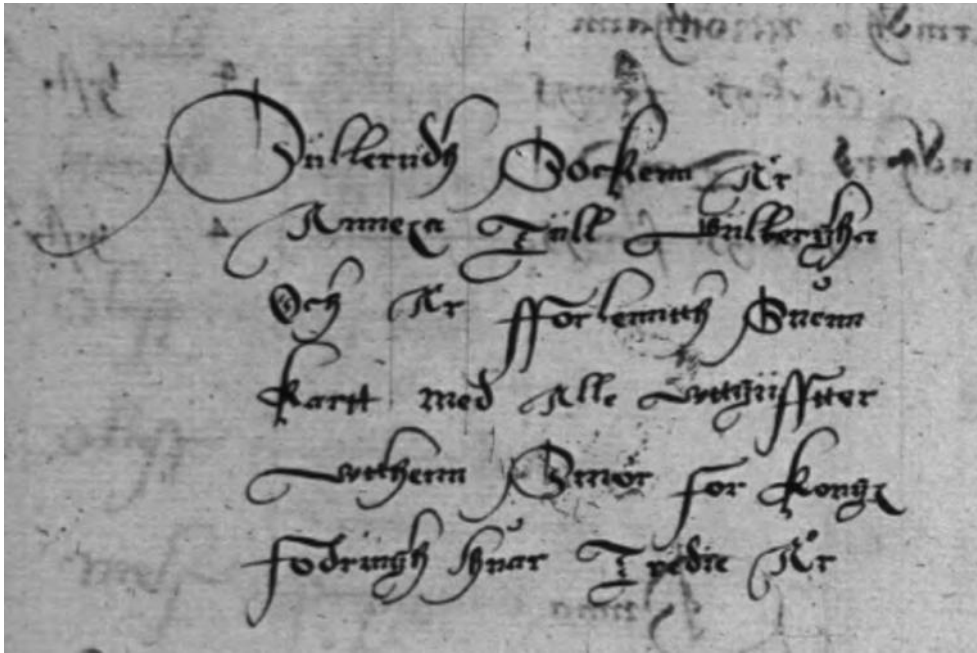 Güllerudh Sockenn Är
Annexa Tüll wüllbergha
Och Är fförlenntth Suenn
kartt med Alle wttgiiffter
wthenn Smör for konngz
fodriingh huar Tredie Är